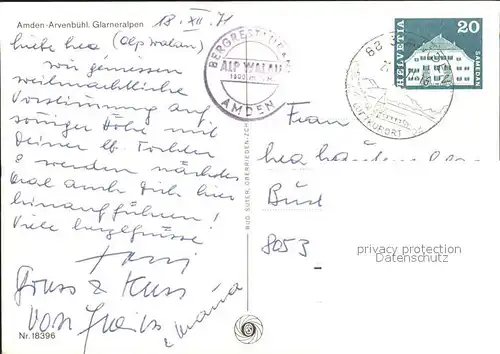 Amden-Arvenbühl. Glarneralpen
18. XII. 71
Liebe Lea (Alp Walau)
wir geniessen
weihnachtliche
Vorstimmung auf
sonniger Höhe mit
Deiner lb. Tochter
& werden nächstes
Mal auch Dich hier
hinaufführen!
Viele Berggrüsse
Gruss & Kuss
von
Nr. 18396
BUD. SUTER, OBERRIEDEN-ZCH
BERGREST
ALP WALAU
AMDEN
HELVETIA
20
SAMEDAN
LUFTKURORT
Frau
Lea
8053
privacy protection
Datenschutz